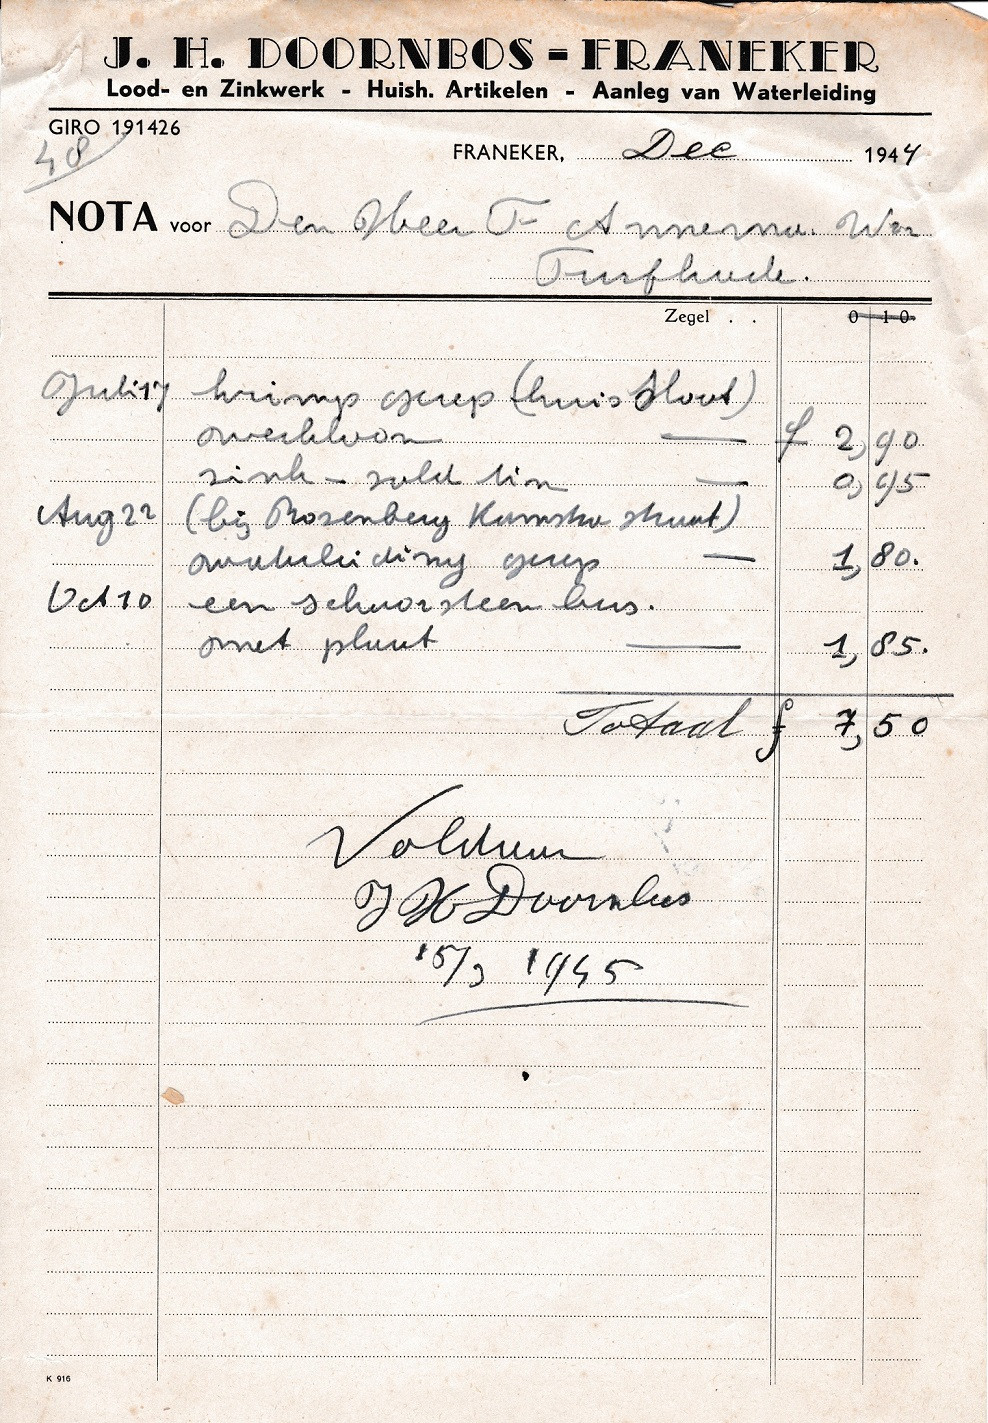 J. H. DOORNBOS - FRANEKER
Lood- en Zinkwerk - Huish. Artikelen - Aanleg van Waterleiding
GIRO 191426
48
FRANEKER, Dec 1944
NOTA voor Den Heer F Annema.
Turfkade.
Zegel . . 0 10
Juli 17 gerep (huis Sloot)
werkloon — f 2,90
zink - sold tin — 0,95
Aug 22 (bij Rosenberg straat)
waterleiding gerep — 1,80.
Oct 10 een schoorsteen bus.
met plaat — 1,85.
Totaal f 7,50
Voldaan
J H Doornbos
15/3 1945
K 916